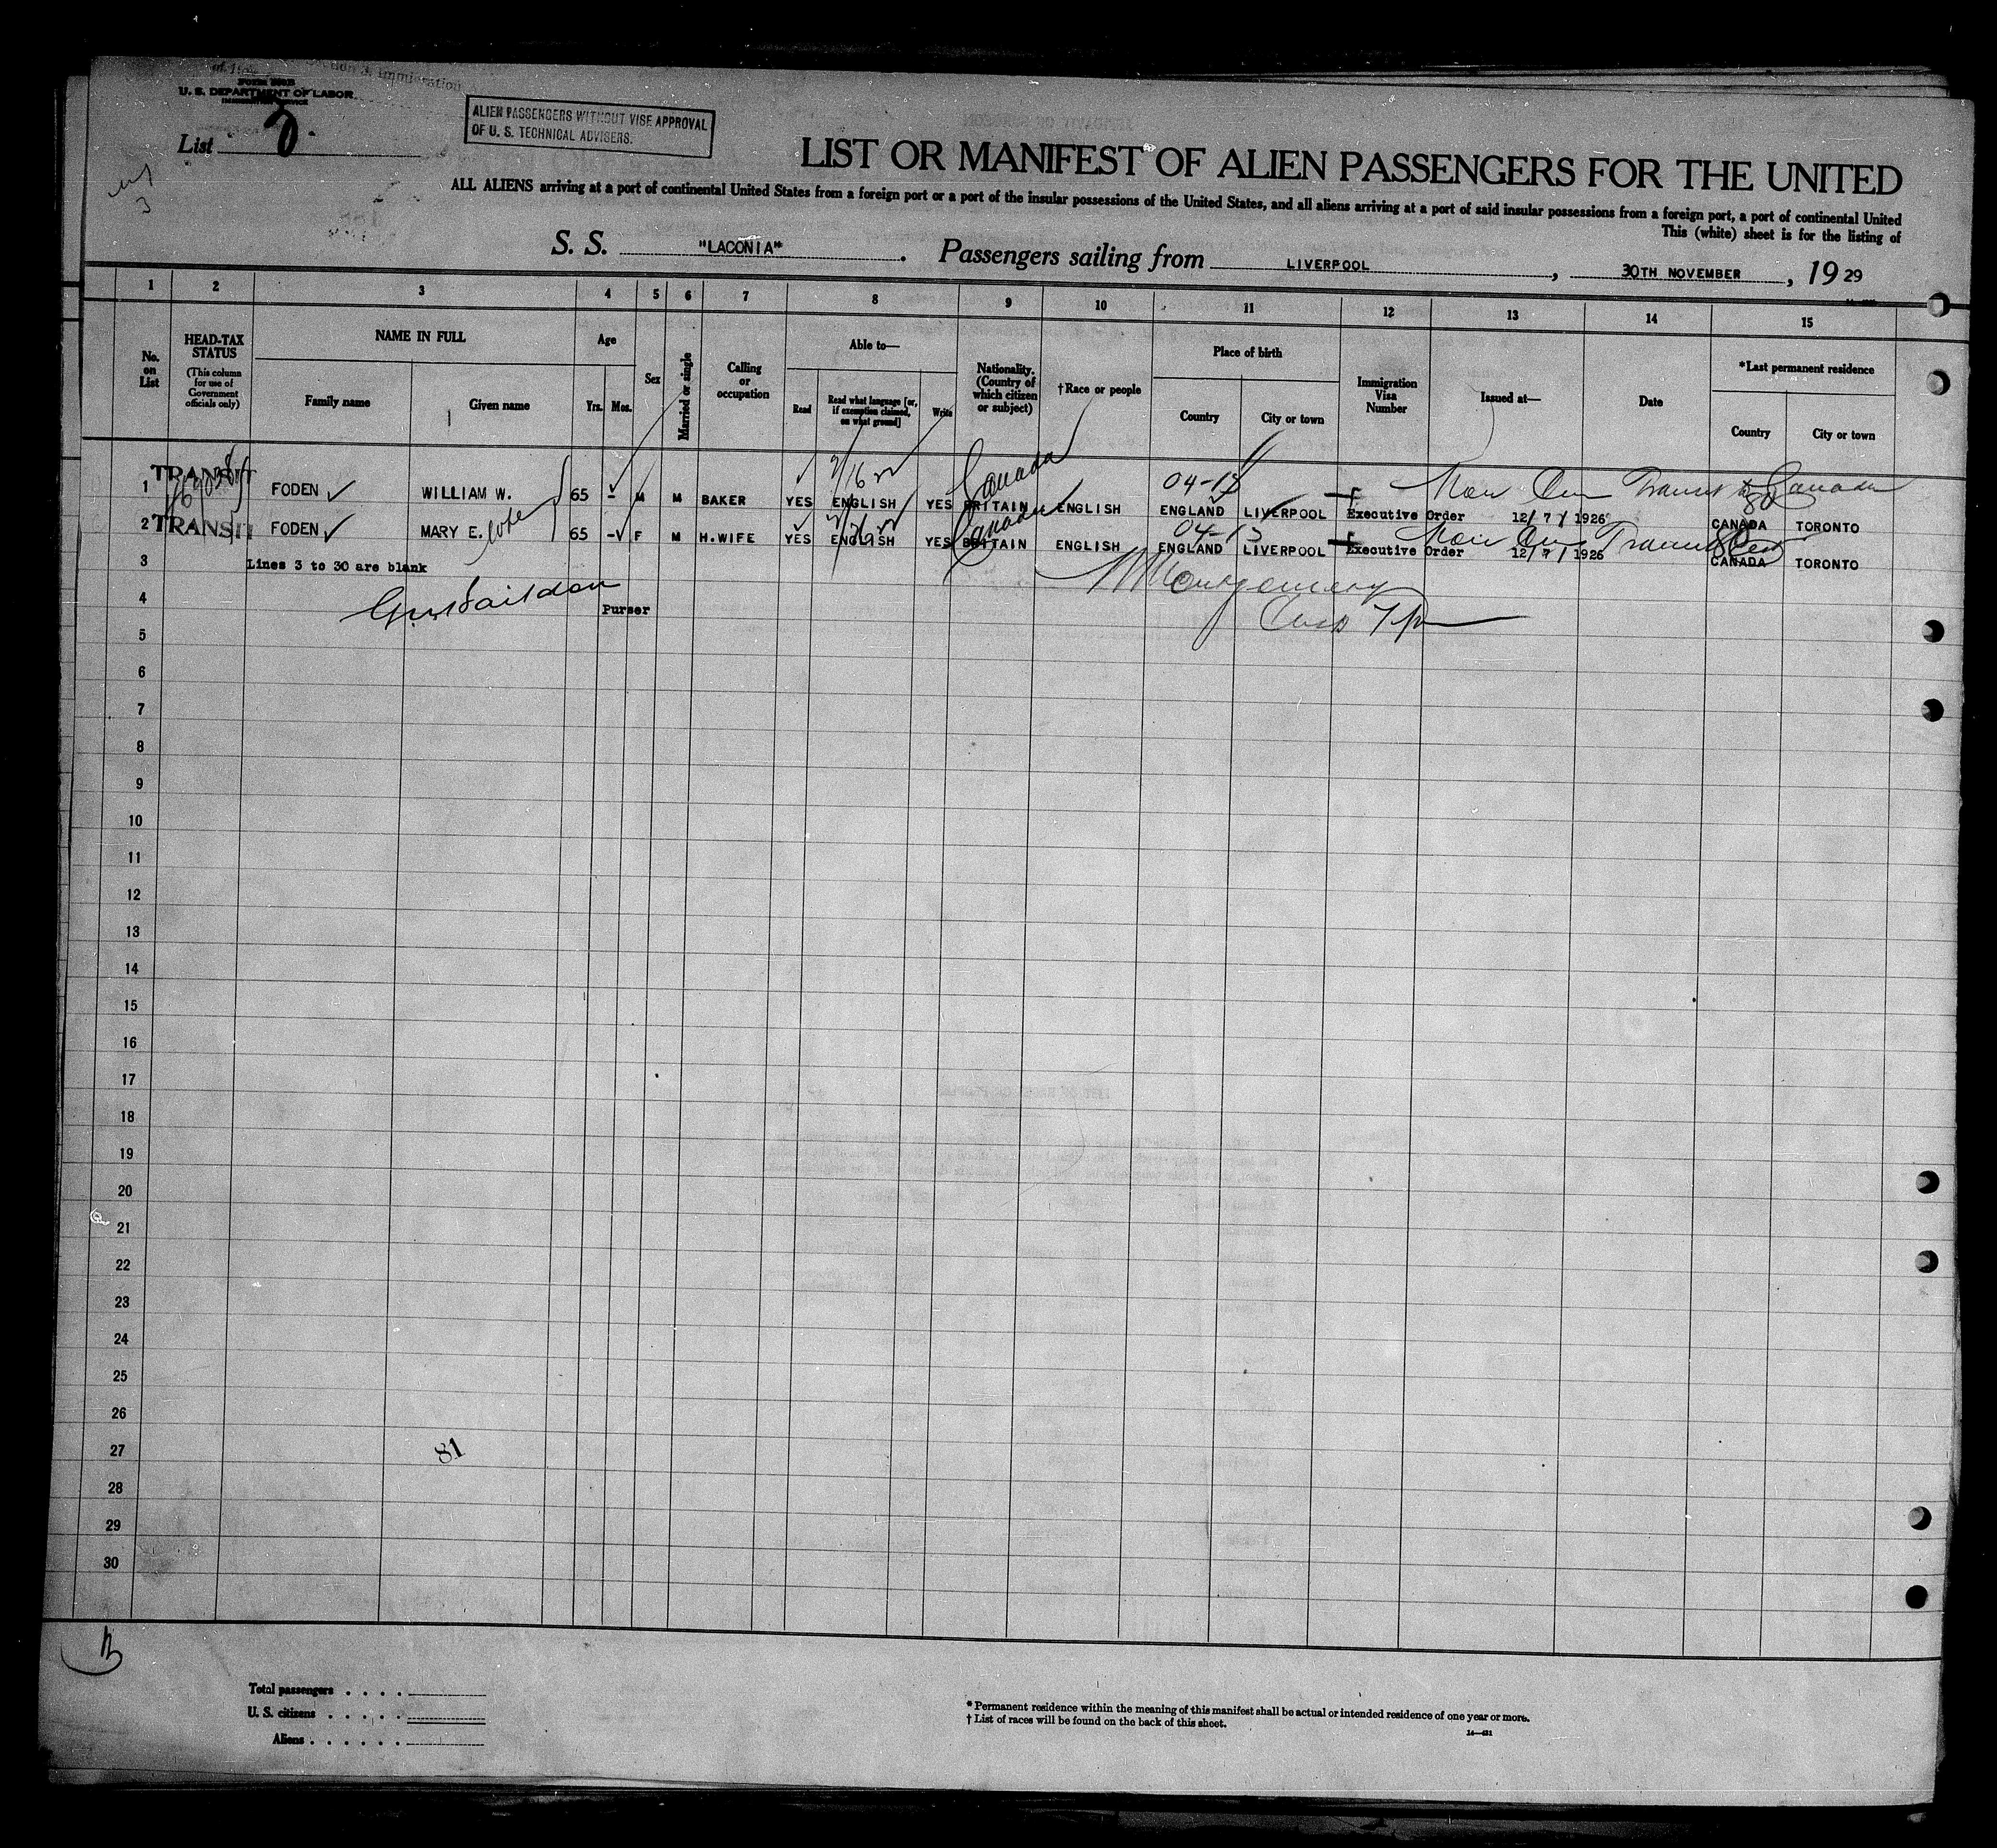 U. S. DEPARTMENT OF LABOR
IMMIGRATION SERVICE
ALIEN PASSENGERS WITHOUT VISE APPROVAL
OF U. S. TECHNICAL ADVISERS.
List 3
3
LIST OR MANIFEST OF ALIEN PASSENGERS FOR THE UNITED
ALL ALIENS arriving at a port of continental United States from a foreign port or a port of the insular possessions of the United States, and all aliens arriving at a port of said insular possessions from a foreign port, a port of continental United
This (white) sheet is for the listing of
S. S. "LACONIA". Passengers sailing from LIVERPOOL, 30TH NOVEMBER, 1929
1 2 3 4 5 6 7 8 9 10 11 12 13 14 15
No. on List
HEAD-TAX STATUS
(This column for use of Government officials only)
NAME IN FULL
Family name
Given name
Age
Yrs.
Mos.
Sex
Married or single
Calling or occupation
Able to—
Read
Read what language [or, if exemption claimed, on what ground]
Write
Nationality. (Country of which citizen or subject)
†Race or people
Place of birth
Country
City or town
Immigration Visa Number
Issued at—
Date
*Last permanent residence
Country
City or town
1 TRANSIT FODEN WILLIAM W. 65 - M M BAKER YES ENGLISH YES BRITAIN Canada ENGLISH ENGLAND LIVERPOOL Executive Order 12/7/1926 CANADA TORONTO
04-13
Transit to Canada
2 TRANSIT FODEN MARY E. 65 - F M H.WIFE YES ENGLISH YES BRITAIN Canada ENGLISH ENGLAND LIVERPOOL Executive Order 12/7/1926 CANADA TORONTO
04-13
3 Lines 3 to 30 are blank
4 Purser
Montgomery
5
6
7
8
9
10
11
12
13
14
15
16
17
18
19
20
21
22
23
24
25
26
27
81
28
29
30
Total passengers . . . .
U. S. citizens . . . . .
Aliens . . . . . .
*Permanent residence within the meaning of this manifest shall be actual or intended residence of one year or more.
†List of races will be found on the back of this sheet.